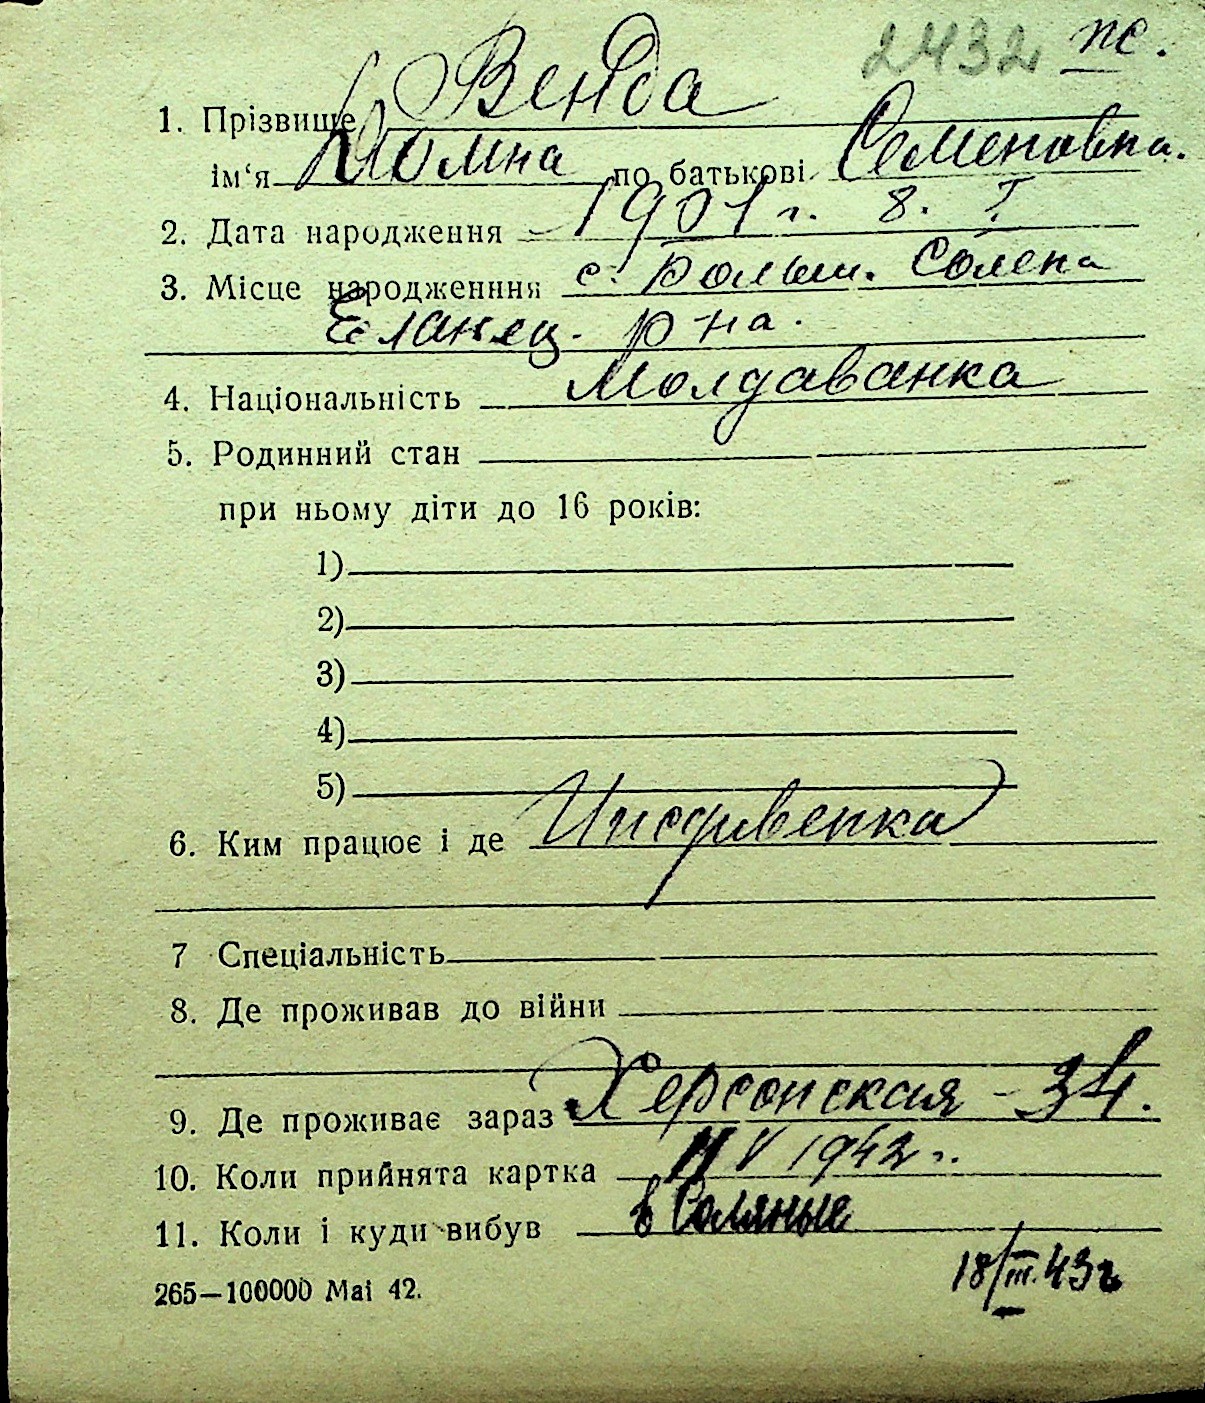 2432 пс.
1. Прізвище Венда
ім‘я Домна по батькові Семеновна.
2. Дата народження 1901 г. 8. I
3. Місце народженння с. Больш. Солена
Еланец. р-на.
4. Національність Молдаванка
5. Родинний стан
при ньому діти до 16 років:
1)
2)
3)
4)
5)
6. Ким працює і де
7 Спеціальність
8. Де проживав до війни
9. Де проживає зараз Херсонская - 34.
10. Коли прийнята картка V 1942 г.
11. Коли і куди вибув в Соляные
18/III.43г
265—100000 Mai 42.